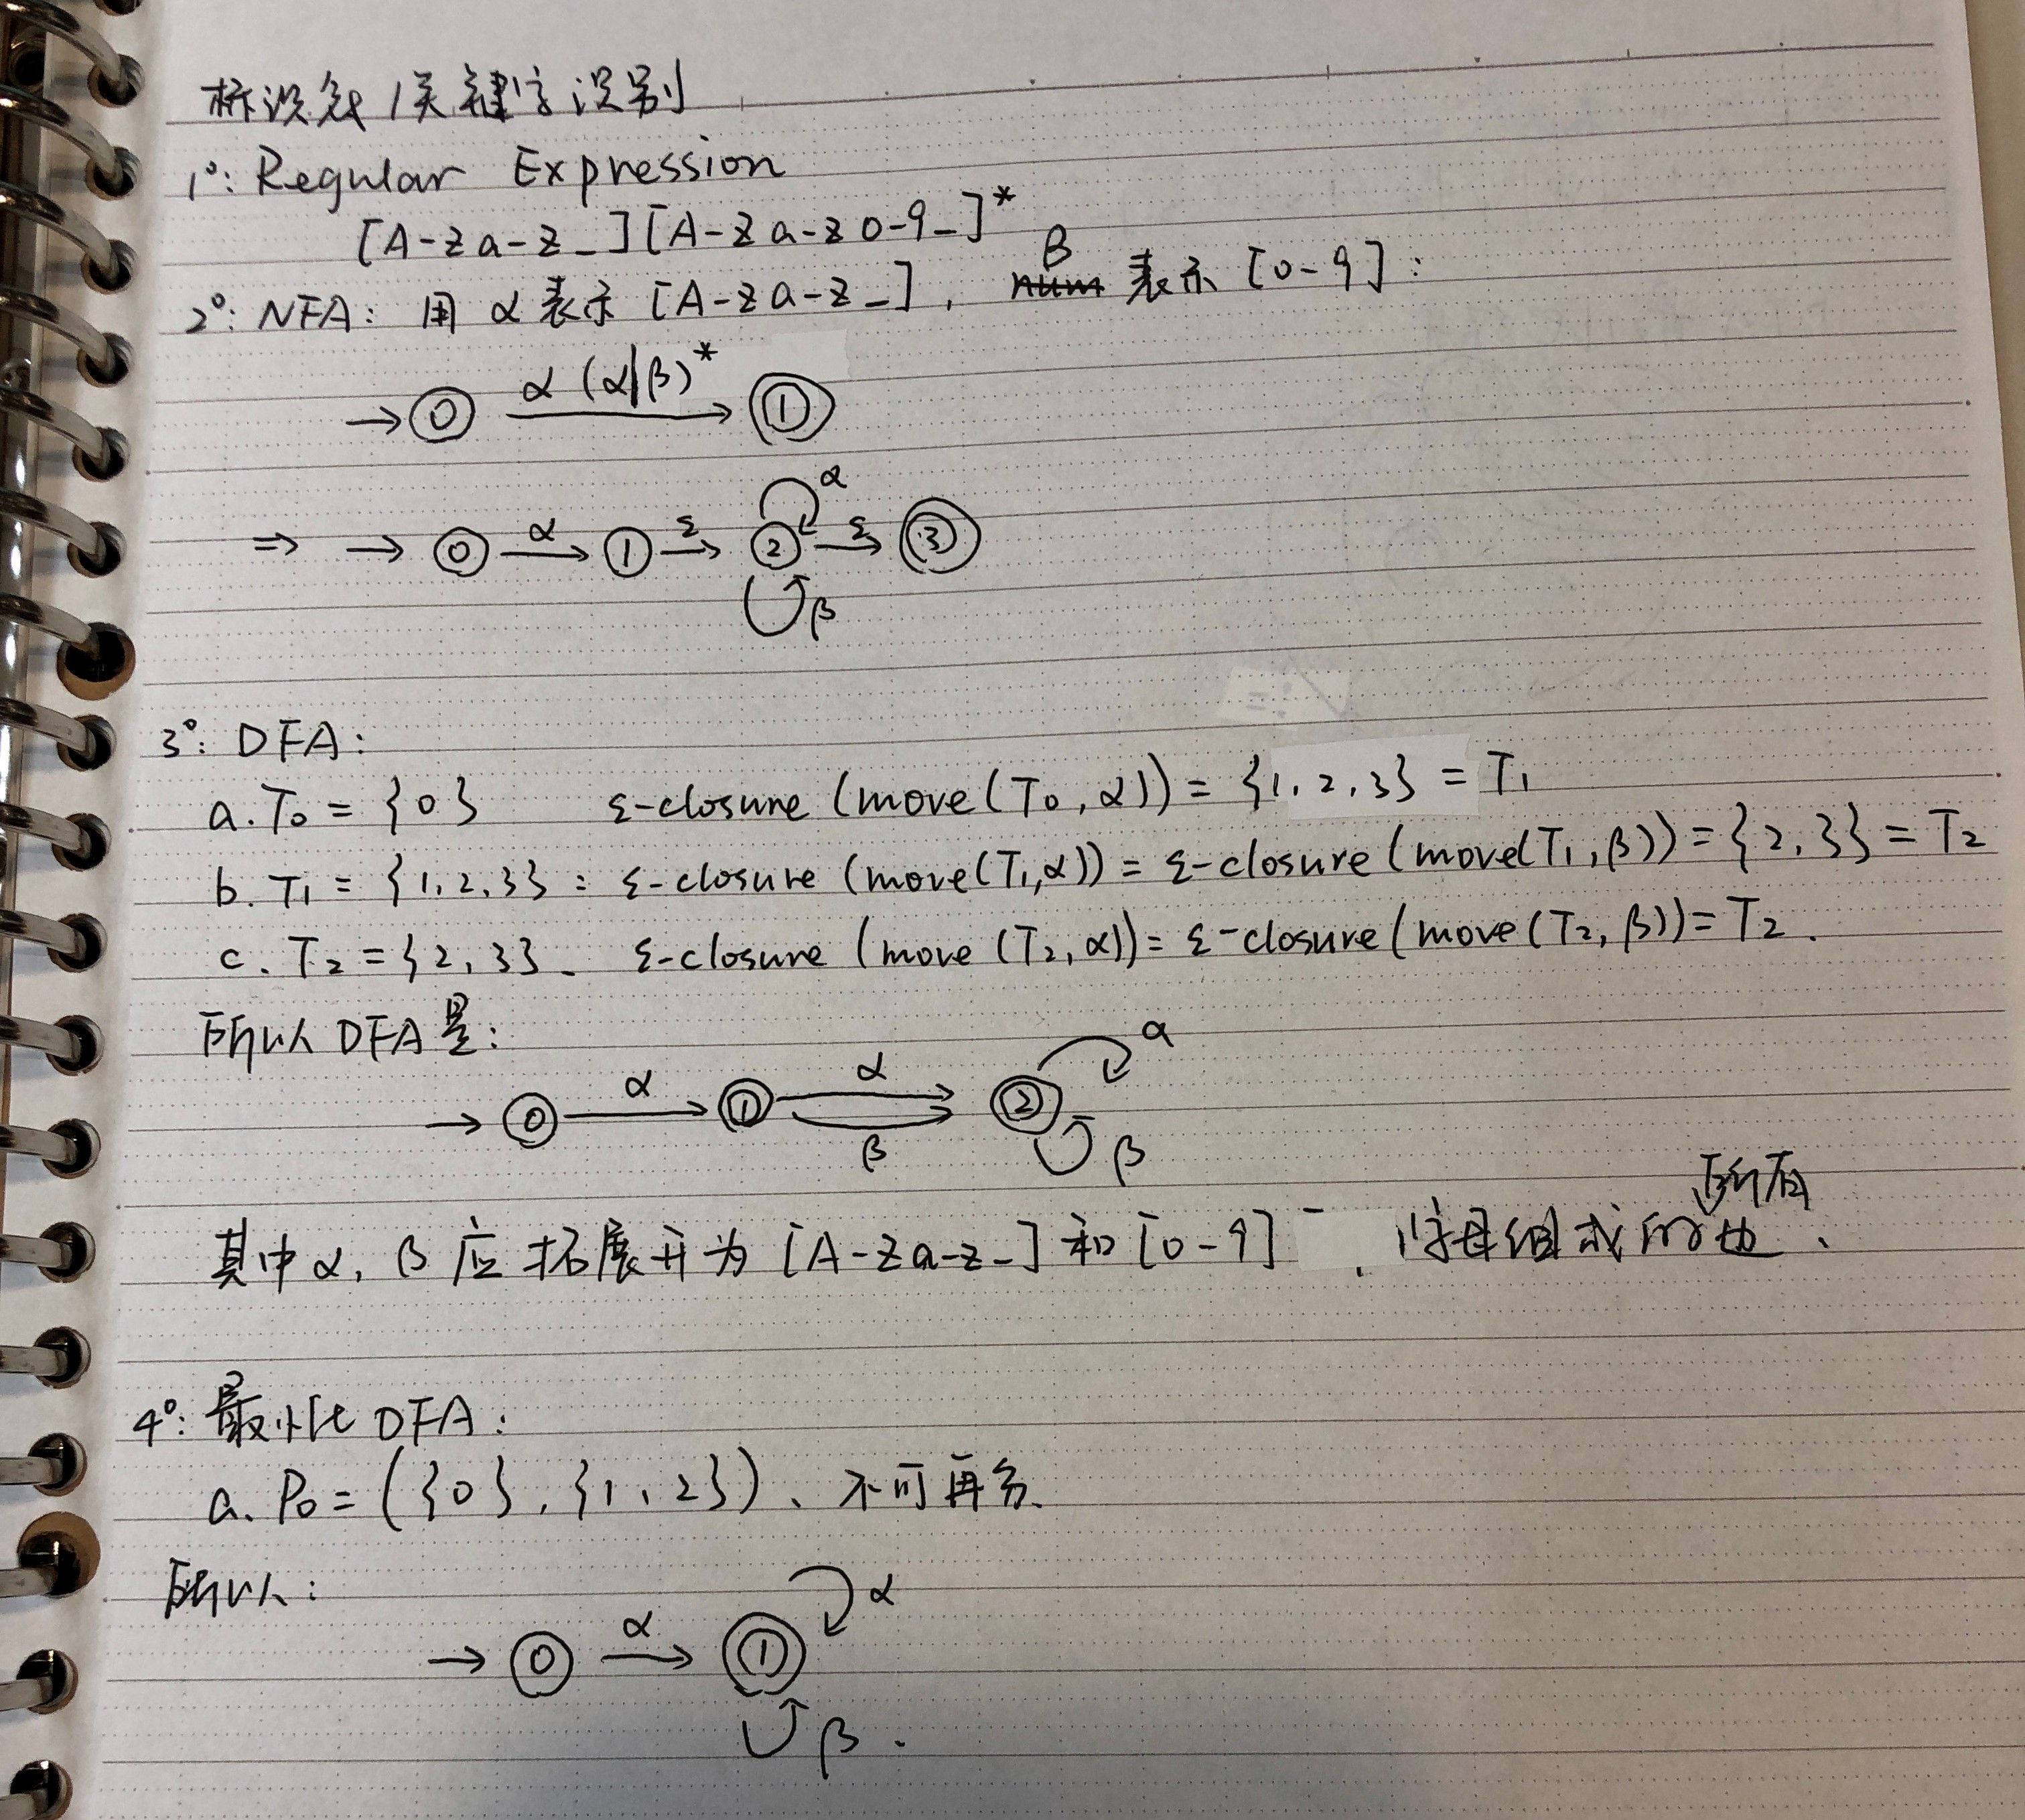 标识符/关键字识别
1°: Regular Expression
[A-Za-z_][A-Za-z0-9_]*
2°: NFA: 用 α 表示 [A-Za-z_], β 表示 [0-9]:
→ 0 α(α|β)* 1
α
⇒ → 0 α 1 ε 2 ε 3
β
3°: DFA:
a. T₀ = {0} ε-closure (move(T₀, α)) = {1, 2, 3} = T₁
b. T₁ = {1, 2, 3} : ε-closure (move(T₁, α)) = ε-closure (move(T₁, β)) = {2, 3} = T₂
c. T₂ = {2, 3}. ε-closure (move (T₂, α)) = ε-closure (move (T₂, β)) = T₂.
所以 DFA 是:
α
→ 0 α 1 α 2
β β
所有
其中 α, β 应拓展开为 [A-Za-z_] 和 [0-9], 字母组成的边.
4°: 最小化 DFA:
a. P₀ = ({0}, {1, 2}), 不可再分.
所以:
α
→ 0 α 1
β.